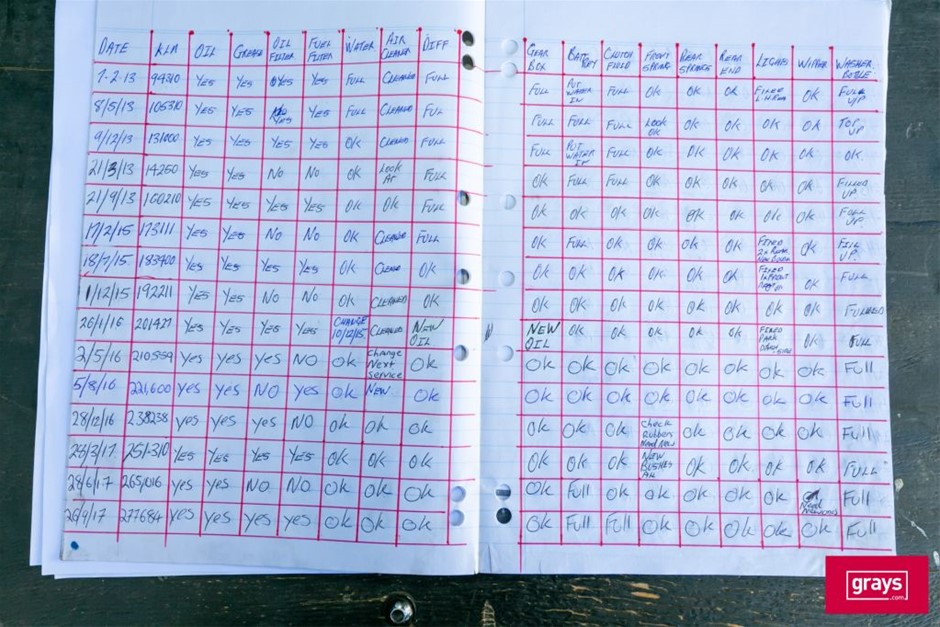 DATE KLM OIL GREASE OIL FILTER FUEL FILTER WATER AIR CLEANER DIFF GEAR BOX BATTREY CLUTCH FIELD FRONT SPRING REAR SPRINGS REAR END LIGHTS WIPPER WASHER BOTTLE
94310 YES YES YES YES FULL CLEANED FULL FULL PUT WATER IN FULL OK OK OK FIXED OK FULL UP
8/5/13 105310 YES YES YES YES FULL CLEANED FULL FULL FULL FULL LOOK OK OK OK OK OK TOP UP
9/12/13 131000 YES YES YES YES OK CLEANED FULL FULL PUT WATER IN FULL OK OK OK OK OK OK.
21/3/13 14250 YES YES NO NO OK LOOK AT FULL OK FULL FULL OK OK OK OK OK FILLED UP.
21/9/13 160210 YES YES YES YES OK OK FULL OK OK OK OK OK OK OK OK FULL UP.
17/2/15 173111 YES YES NO NO OK CLEANED FULL OK FULL OK OK OK OK FIXED 2x OK FILL UP.
18/7/15 183400 YES YES YES YES OK OK OK OK OK OK OK OK FIXED OK FULL
1/12/15 192211 YES YES NO NO OK CLEANED OK OK OK OK OK OK OK OK OK
20/1/16 201427 YES YES YES YES CHANGE 10/12/15. CLEANED NEW OIL NEW OIL OK OK OK OK OK FIXED PARK OK FULL
2/5/16 210959 yes yes yes NO OK Change Next Service OK OK OK OK OK OK OK OK OK Full
5/8/16 221,600 yes yes NO yes OK NEW OK OK OK OK OK OK OK OK OK Full
28/12/16 238238 yes yes yes NO OK OK OK OK OK OK Check Rubbers Need New OK OK OK OK Full
28/3/17 251310 YES YES YES YES OK OK OK OK OK OK NEW BUSHES OK OK OK OK FULL
28/6/17 265,016 yes yes NO NO OK OK OK OK Full OK OK OK OK OK Need Full
277684 yes yes yes yes OK OK OK OK Full Full OK OK OK OK OK Full
grays
.com